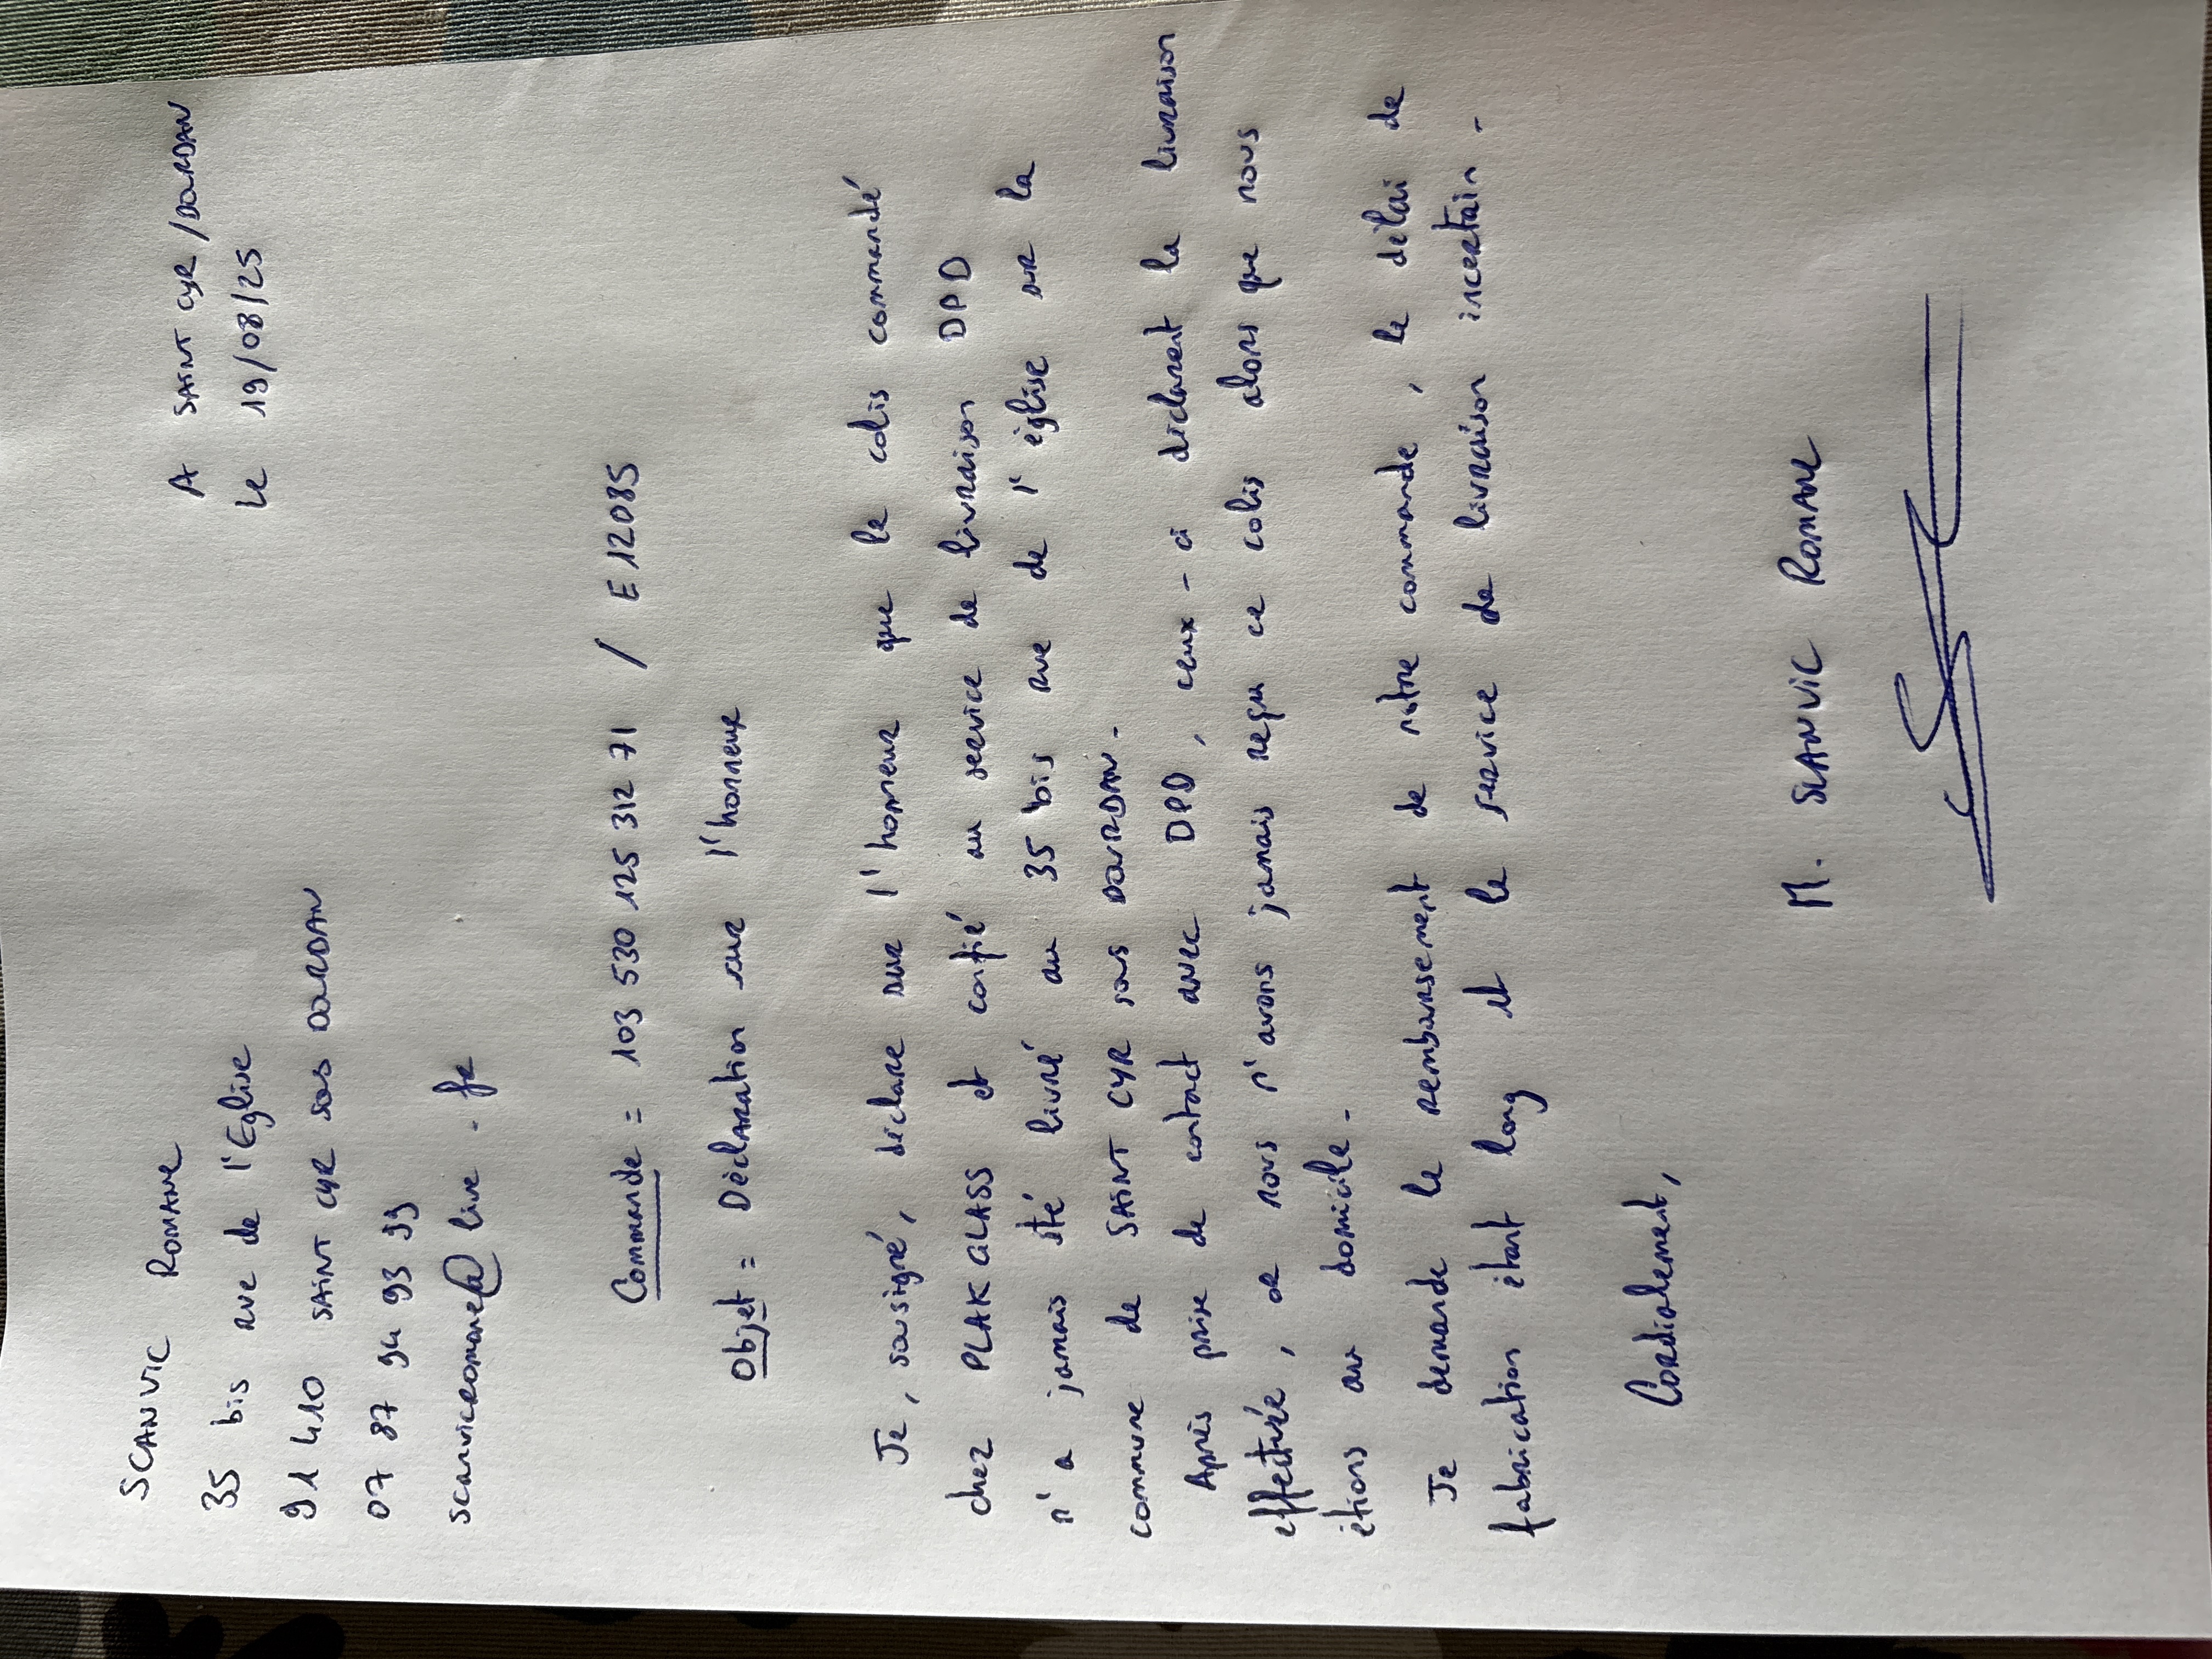 SCANVIC ROMANE
35 bis rue de l'Eglise
91 410 SAINT CYR SOUS DOURDAN
07 87 94 93 99
scanvicromane@live.fr
A SAINT CYR / DOURDAN
Le 19/08/25
Commande = 103 530 125 312 71 / E 12085
Objet = Déclaration sur l'honneur
Je, sousigné, déclare sur l'honneur que le colis commandé
chez PLAK GLASS et confié au service de livraison DPD
n'a jamais été livré au 35 bis rue de l'église sur la
commune de SAINT CYR sous DOURDAN.
Après prise de contact avec DPD, ceux-ci déclarent la livraison
effectuée, or nous n'avons jamais reçu ce colis alors que nous
étions au domicile.
Je demande le remboursement de notre commande, le délai de
fabrication étant long et le service de livraison incertain.
Cordialement,
M. SCANVIC ROMANE